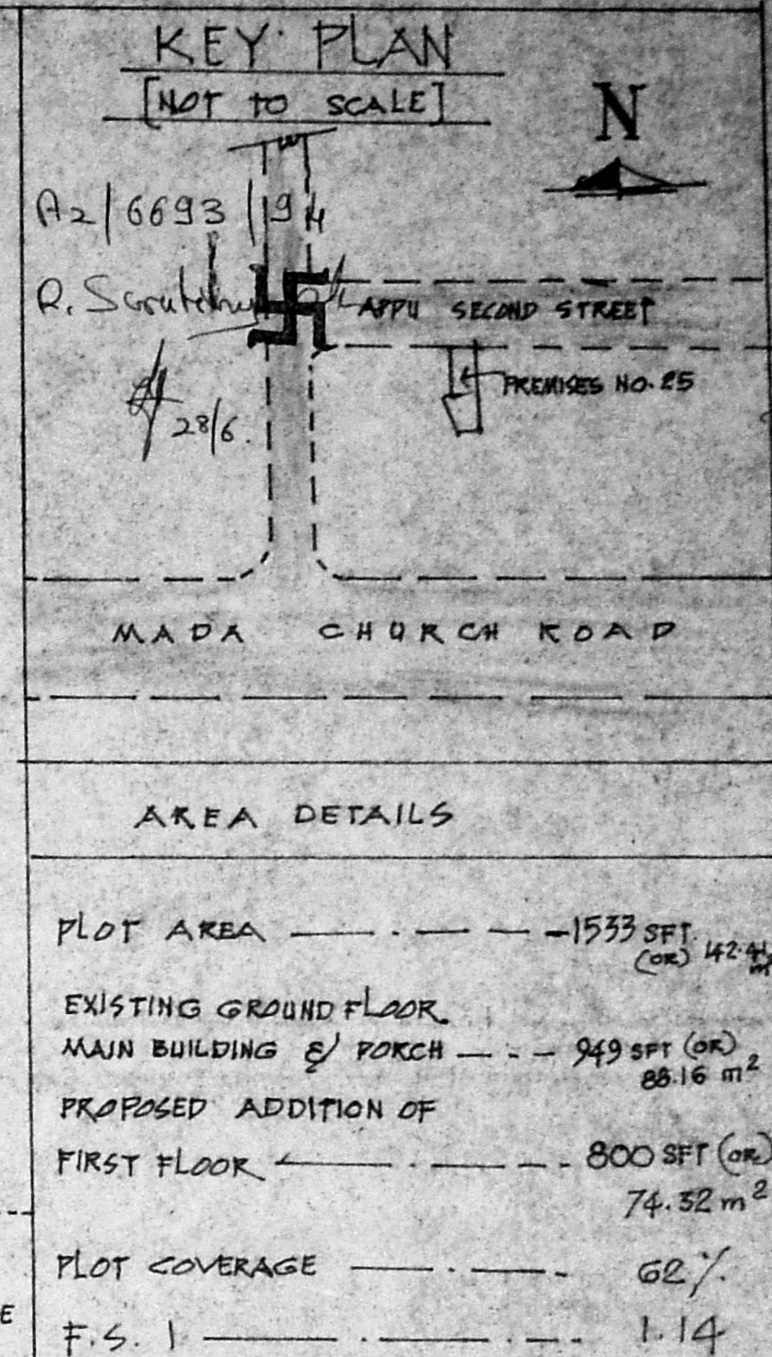 KEY PLAN
[NOT TO SCALE]
N
A2/6693/94
APPU SECOND STREET
PREMISES NO. 25
28/6.
MADA CHURCH ROAD
AREA DETAILS
PLOT AREA 1533 SFT
(OR) 142.41
EXISTING GROUND FLOOR
MAIN BUILDING & PORCH 949 SFT (OR)
88.16 m²
PROPOSED ADDITION OF
FIRST FLOOR 800 SFT (OR)
74.32 m²
PLOT COVERAGE 62%
F.S.I 1.14